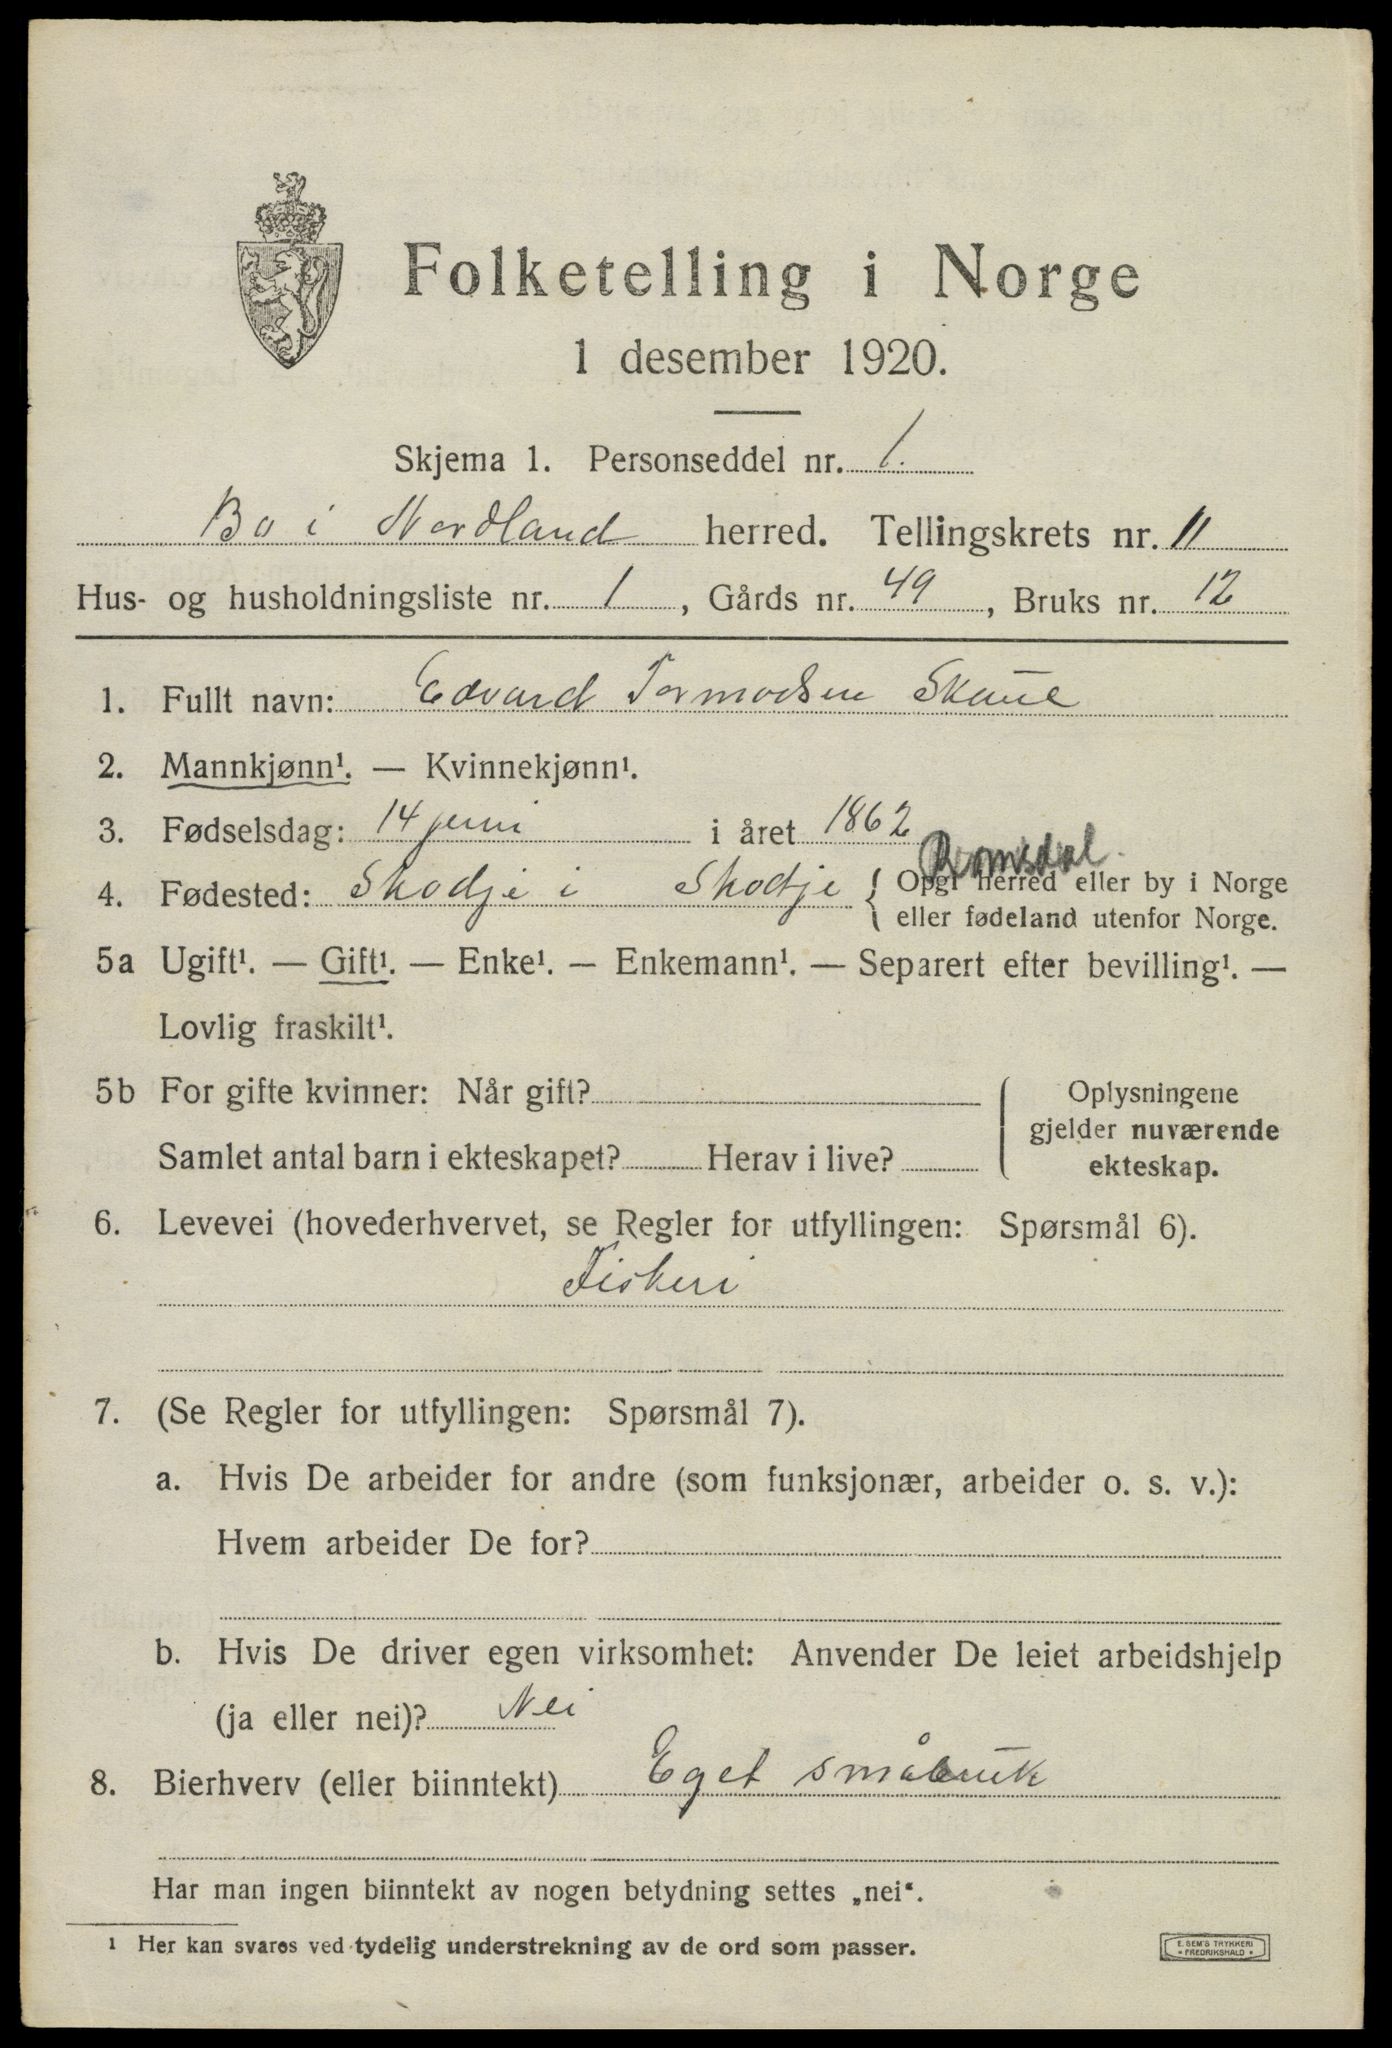 Folketelling i Norge
1 desember 1920.
Skjema 1. Personseddel nr. 1.
Bø i Nordland herred. Tellingskrets nr. 11
Hus- og husholdningsliste nr. 1, Gårds nr. 49, Bruks nr. 12
1. Fullt navn: Edvard Tormodsen
2. Mannkjønn¹. — Kvinnekjønn¹.
3. Fødselsdag: 14 juni i året 1862
Romsdal.
4. Fødested: Skodje i Skodje { Opgi herred eller by i Norge
eller fødeland utenfor Norge.
5a Ugift¹. — Gift¹. — Enke¹. — Enkemann¹. — Separert efter bevilling¹. —
Lovlig fraskilt¹.
5b For gifte kvinner: Når gift? ( Oplysningene
gjelder nuværende
Samlet antal barn i ekteskapet? Herav i live? ekteskap.
6. Levevei (hovederhvervet, se Regler for utfyllingen: Spørsmål 6).
Fiskeri
7. (Se Regler for utfyllingen: Spørsmål 7).
a. Hvis De arbeider for andre (som funksjonær, arbeider o. s. v.):
Hvem arbeider De for?
b. Hvis De driver egen virksomhet: Anvender De leiet arbeidshjelp
(ja eller nei)? Nei
8. Bierhverv (eller biinntekt) Eget småbruk
Har man ingen biinntekt av nogen betydning settes „nei“.
1 Her kan svares ved tydelig understrekning av de ord som passer.
E. SEM'S TRYKKERI
FREDRIKSHALD